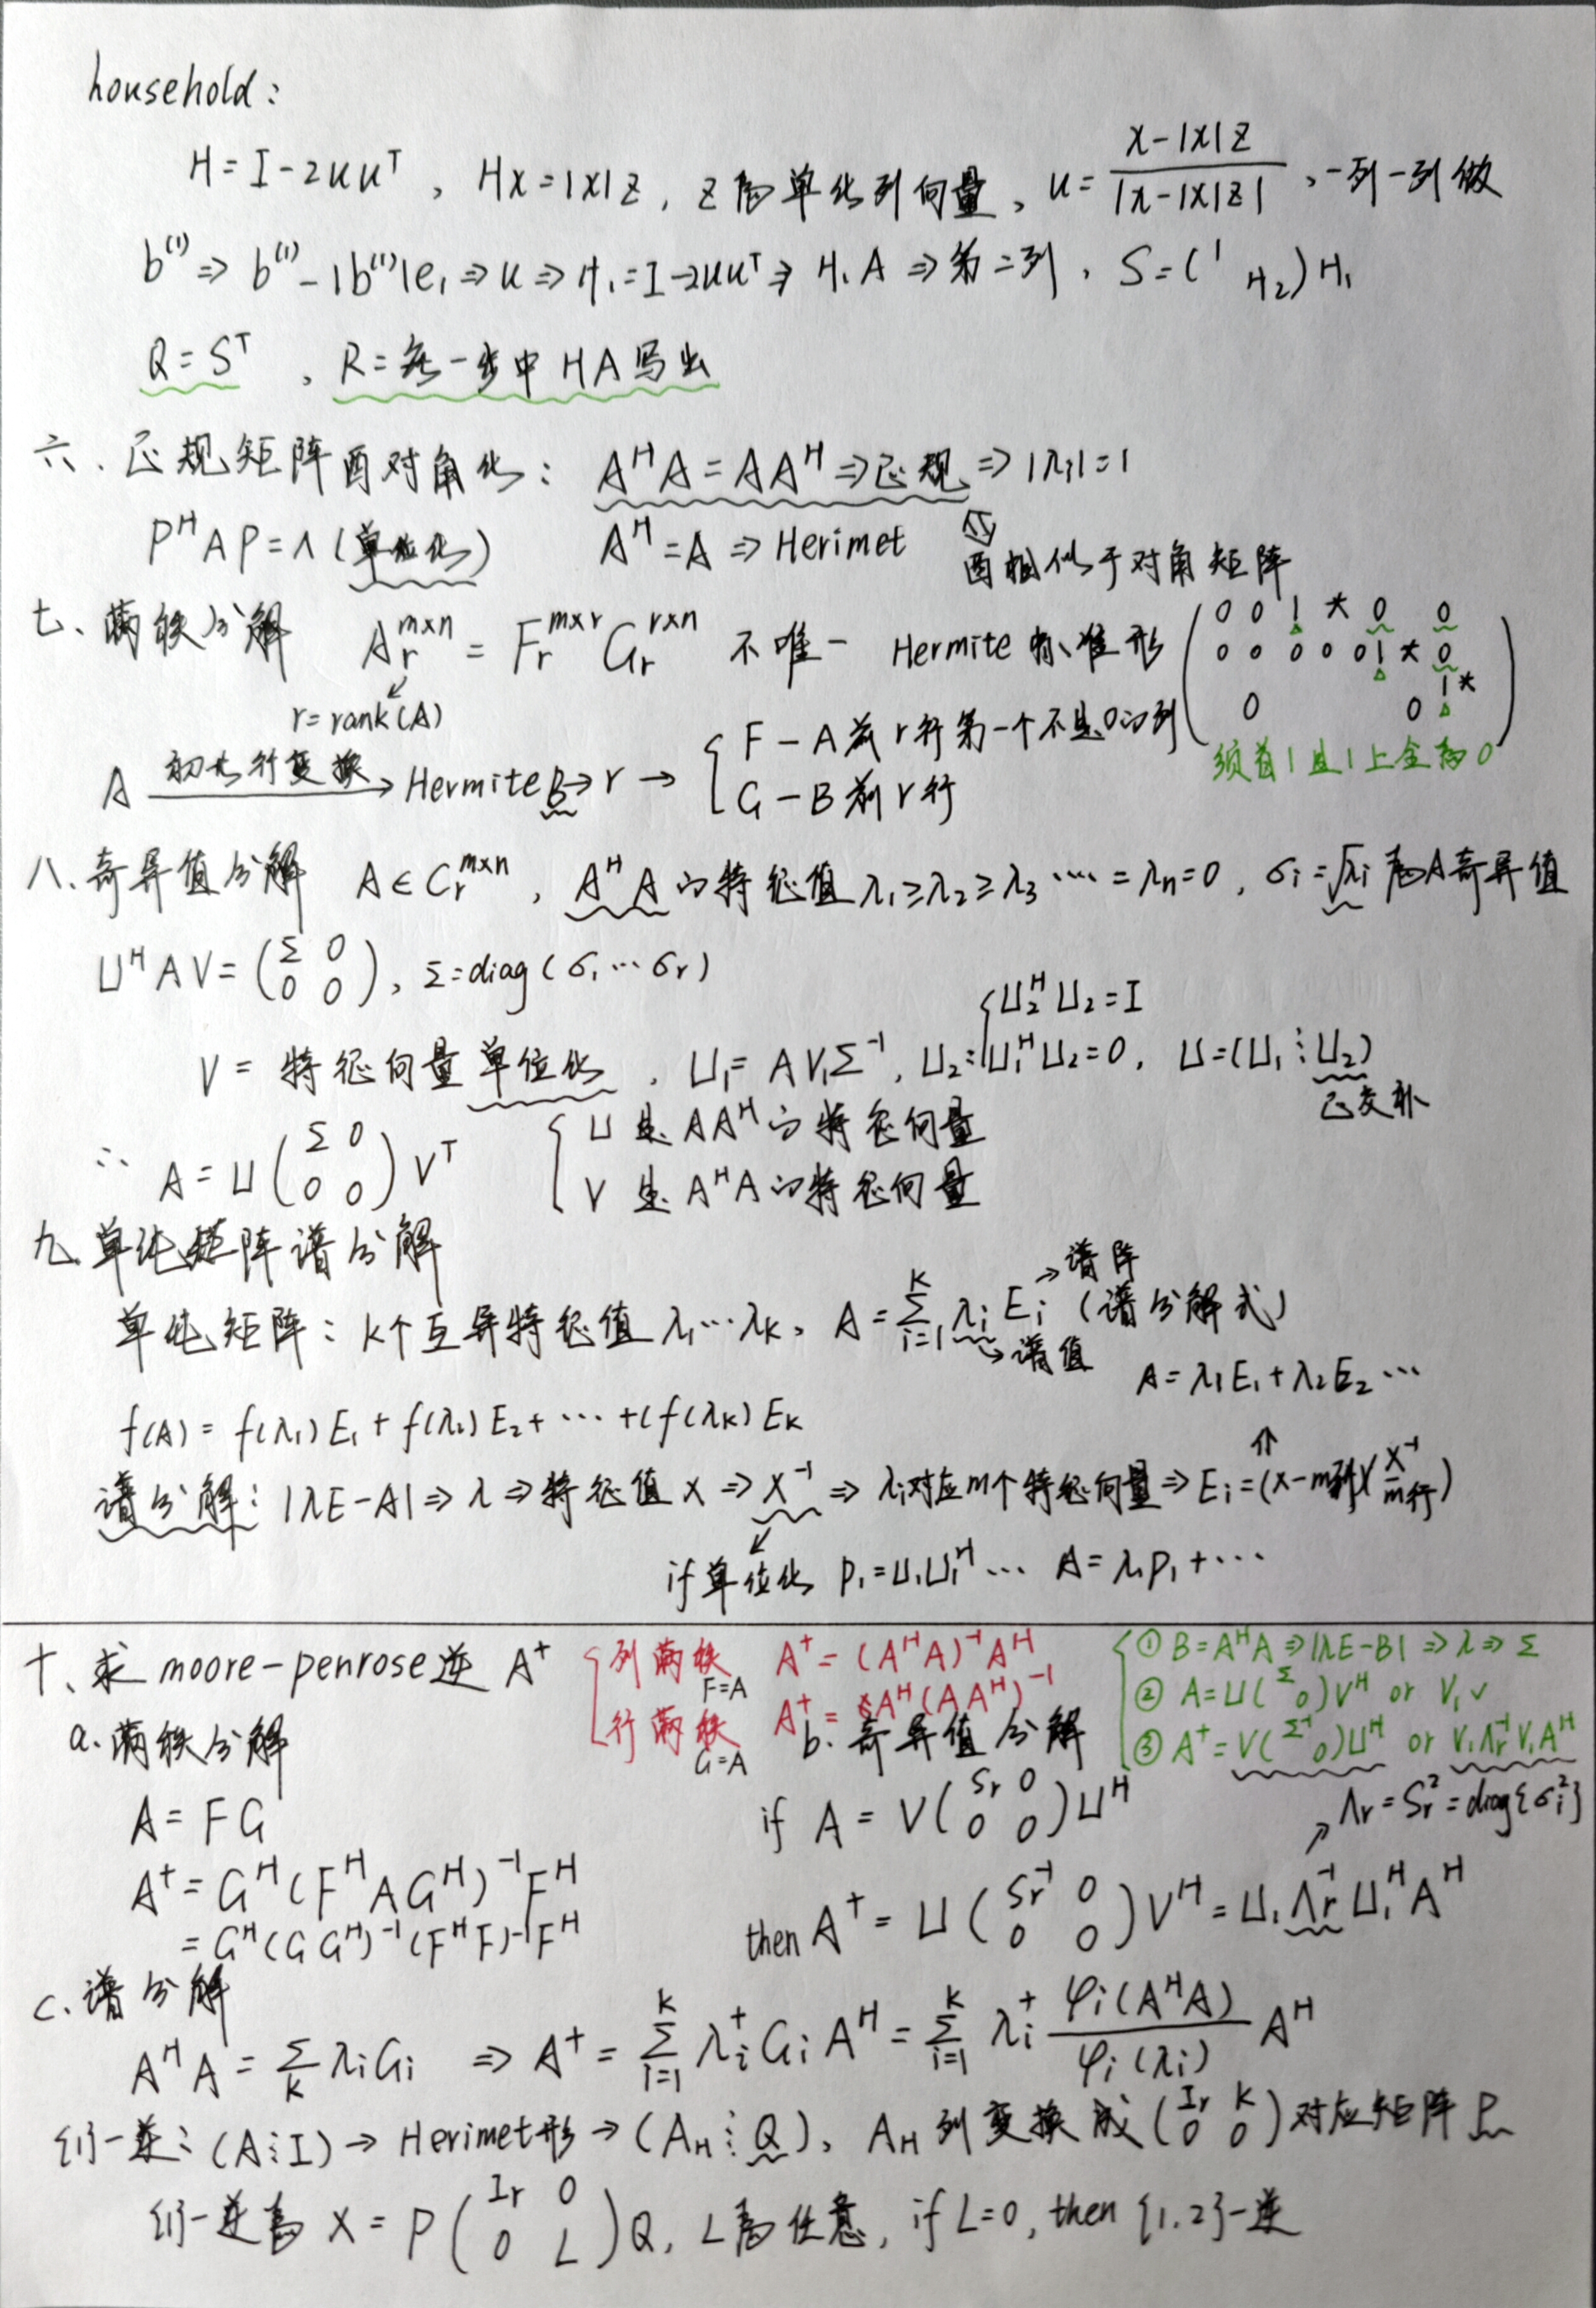 household：
H=I-2uu^T ，Hx=|x|z，z为单化列向量，u=\frac{x-|x|z}{|x-|x|z|}，一列一列做
b^{(1)} ⇒ b^{(1)}-|b^{(1)}|e_1 ⇒ u ⇒ H_1=I-2uu^T ⇒ H_1A ⇒ 第二列，S=(^1 _{H_2})H_1
Q=S^T ，R=每一步中HA写出
六、正规矩阵酉对角化： A^HA=AA^H ⇒正规 ⇒ |λi|=1
P^HAP=Λ（单位化） A^H=A ⇒ Herimet ⇕
酉相似于对角矩阵
七、满秩分解 A_r^{m×n}=F_r^{m×r}G_r^{r×n} 不唯一 Hermite标准形
r=rank(A)
0 0 1 * 0 0
0 0 0 0 0 1 * 0
1 *
0 0
须首1且1上全为0
A 初等行变换→ Hermite B→r→ { F-A前r行第一个不是0的列
G-B前r行
八、奇异值分解 A∈C_r^{m×n}，A^HA的特征值λ_1≥λ_2≥λ_3…=λ_n=0，σ_i=√λi为A奇异值
U^HAV=(Σ 0 / 0 0)，Σ=diag(σ_1…σ_r)
V=特征向量单位化，U_1=AV_1Σ^{-1}，U_2:{U_2^HU_2=I / U_1^HU_2=0，U=(U_1⋮U_2)
正交补
∴ A=U(Σ 0 / 0 0)V^T { U是AA^H的特征向量
V是A^HA的特征向量
九、单纯矩阵谱分解
单纯矩阵：k个互异特征值λ_1…λ_k，A=\sum_{i=1}^{k}λ_iE_i（谱分解式）
→谱阵
→谱值
A=λ_1E_1+λ_2E_2…
f(A)=f(λ_1)E_1+f(λ_2)E_2+…+(f(λ_k)E_k
谱分解：|λE-A|⇒λ⇒特征值X⇒X^{-1}⇒λi对应m个特征向量⇒E_i=(X-m列)(\frac{X^{-1}}{m行})
if单位化 P_1=U_1U_1^H… A=λ_1P_1+…
十、求moore-penrose逆A^+
{列满秩 F=A A^+=(A^HA)^{-1}A^H
行满秩 G=A A^+=A^H(AA^H)^{-1}
{① B=A^HA⇒|λE-B|⇒λ⇒Σ
② A=U(Σ 0)V^H or V_1✓
③ A^+=V(Σ^{-1} 0)U^H or V_1Λ_r^{-1}V_1A^H
a.满秩分解
A=FG
A^+=G^H(F^HAG^H)^{-1}F^H
=G^H(GG^H)^{-1}(F^HF)^{-1}F^H
b.奇异值分解
if A=V(Sr 0 / 0 0)U^H
Λr=S_r^2=diag{σ_i^2}
then A^+=U(Sr^{-1} 0 / 0 0)V^H=U_1Λ_r^{-1}U_1^HA^H
c.谱分解
A^HA=\sum_k λ_iG_i ⇒ A^+=\sum_{i=1}^{k}λ_i^+G_iA^H=\sum_{i=1}^{k}λ_i^+\frac{φ_i(A^HA)}{φ_i(λ_i)}A^H
{1}-逆：(A⋮I)→Herimet形→(A_H⋮Q)，A_H列变换成(Ir K / 0 0)对应矩阵P
{1}-逆为X=P(Ir 0 / 0 L)Q，L为任意，if L=0，then{1,2}-逆